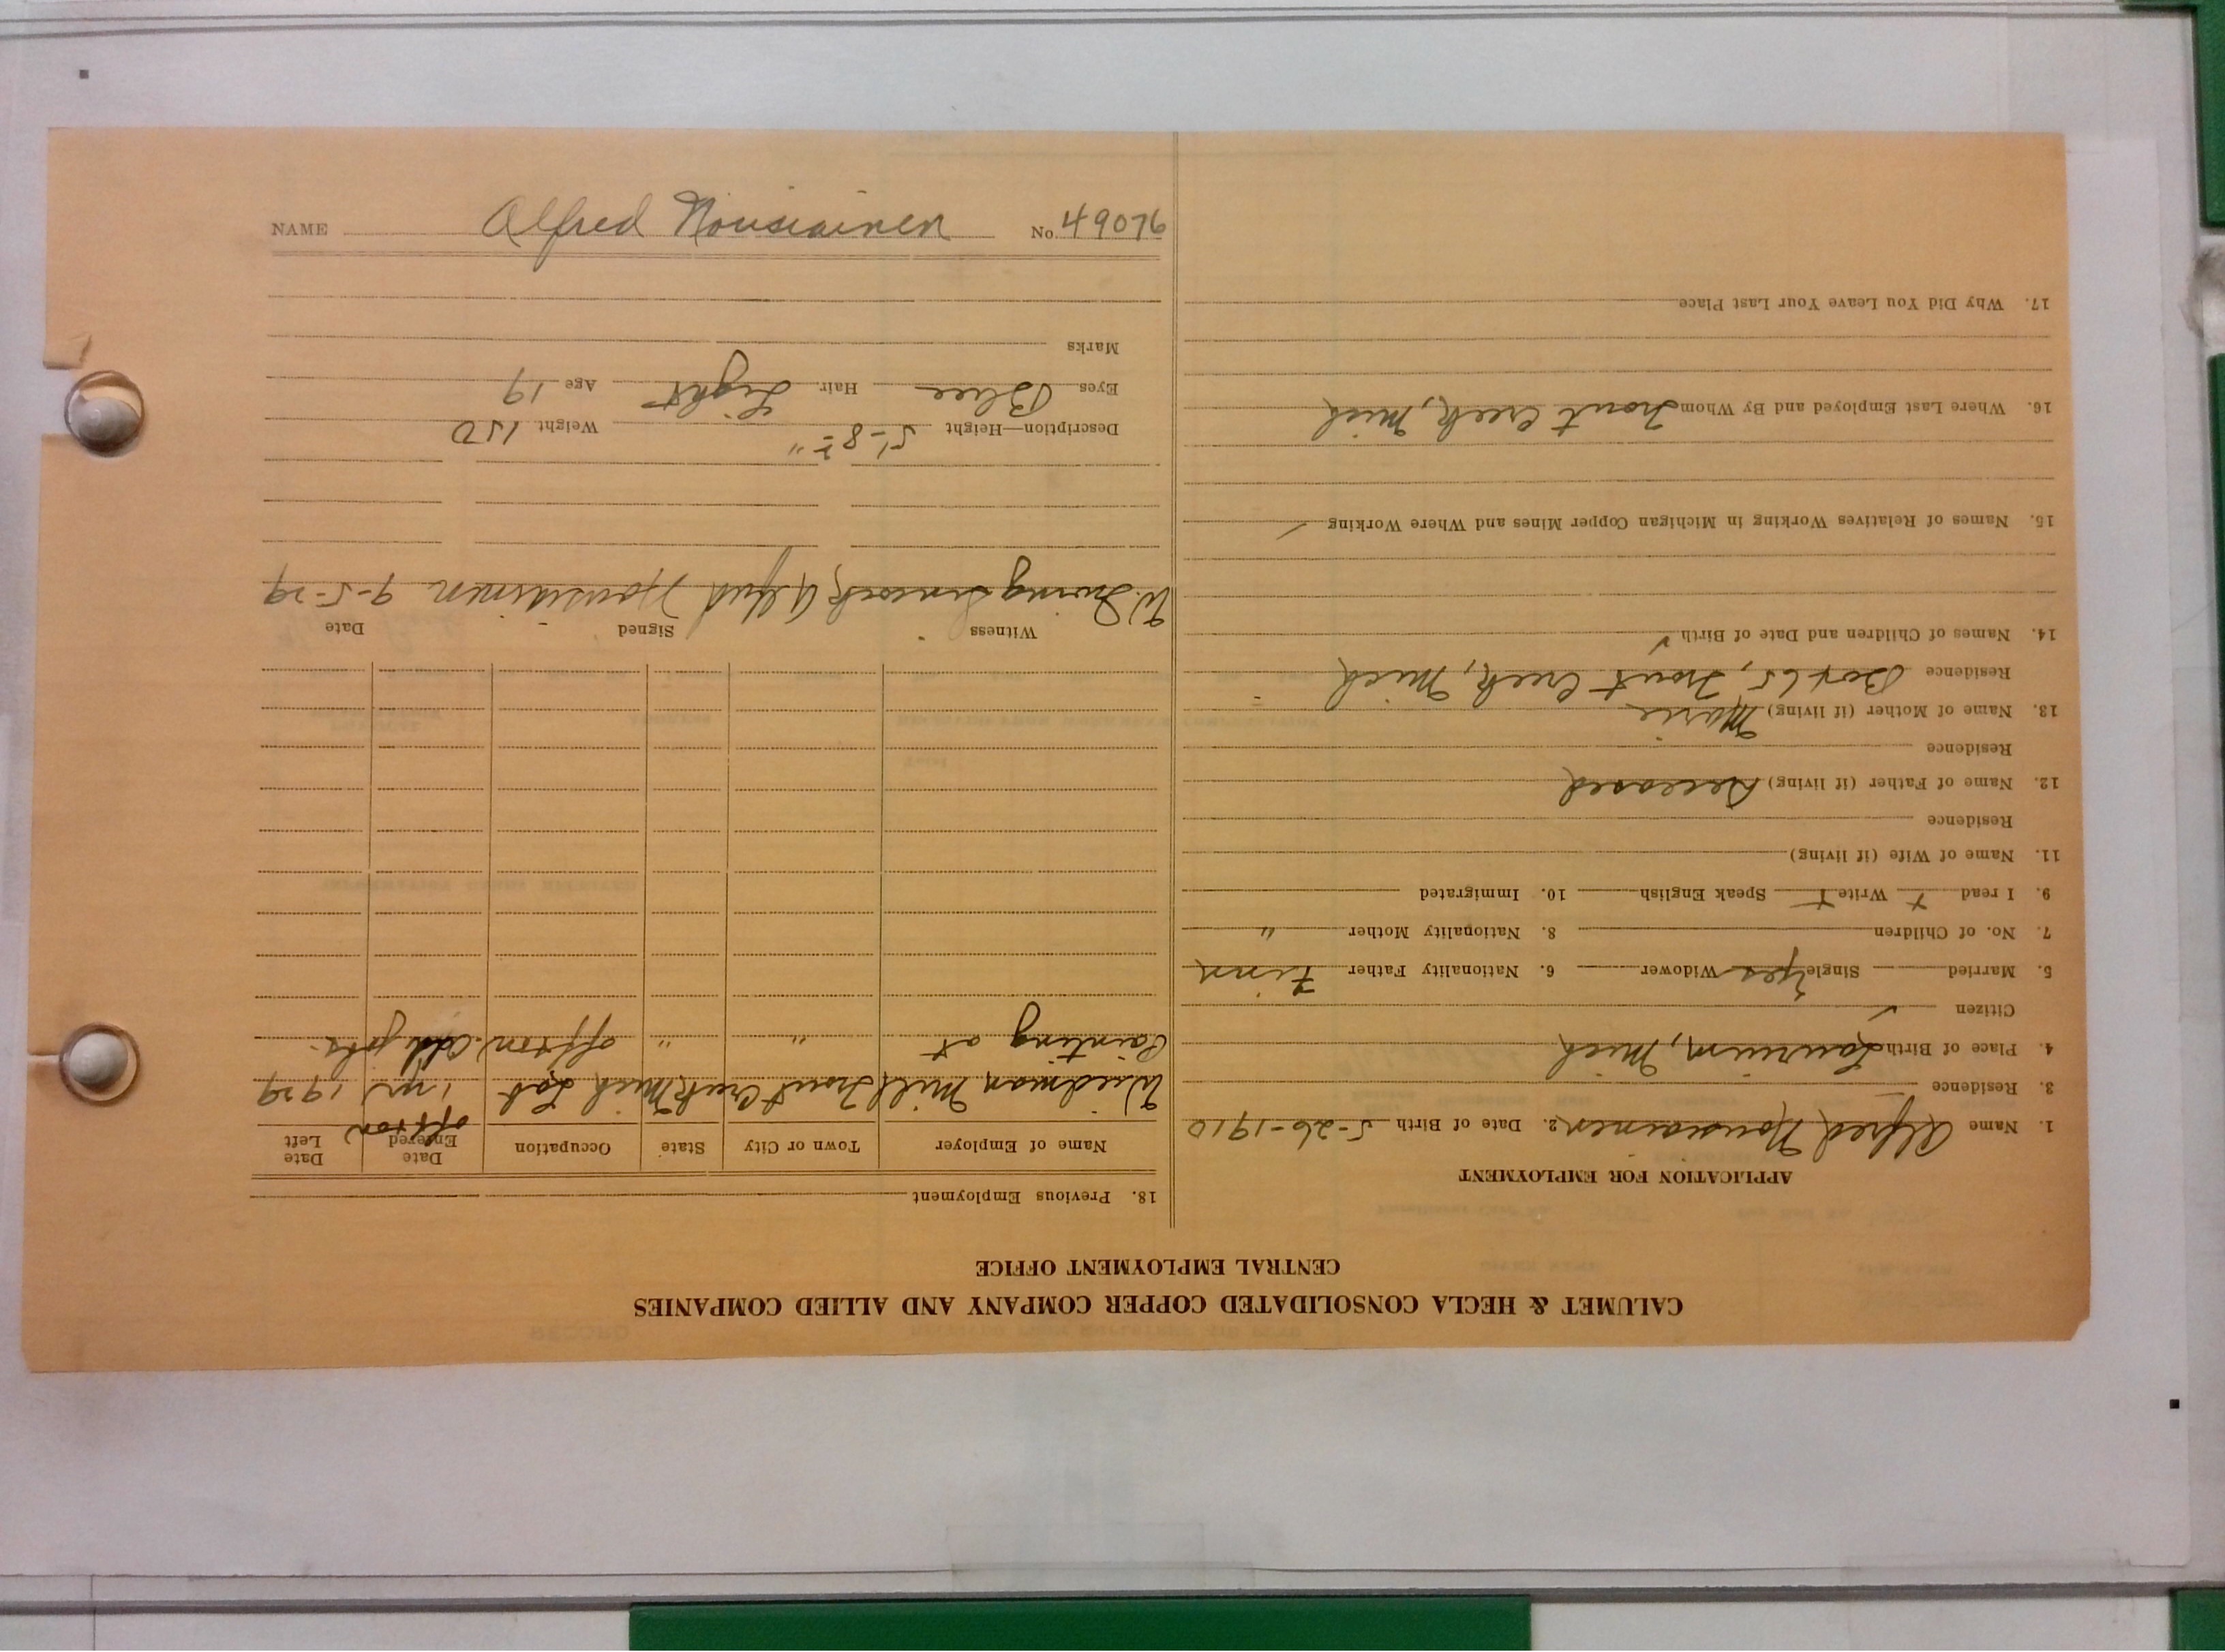 NAME Alfred Nousiainen No. 49076
CALUMET & HECLA CONSOLIDATED COPPER COMPANY AND ALLIED COMPANIES
CENTRAL EMPLOYMENT OFFICE
APPLICATION FOR EMPLOYMENT
1. Name Alfred Nousiainen 2. Date of Birth 5-26-1910
3. Residence
4. Place of Birth Laurium, Mich
Citizen ✓
5. Married Single Yes Widower 6. Nationality Father Finn
7. No. of Children 8. Nationality Mother "
9. I read + Write + Speak English 10. Immigrated
11. Name of Wife (if living)
Residence
12. Name of Father (if living) Deceased
Residence
13. Name of Mother (if living) Marie
Residence Box 65, Trout Creek, Mich
14. Names of Children and Date of Birth ✓
15. Names of Relatives Working in Michigan Copper Mines and Where Working ✓
16. Where Last Employed and By Whom Trout Creek, Mich
17. Why Did You Leave Your Last Place
18. Previous Employment
Name of Employer Town or City State Occupation Date Entered Date Left
off & on
Weidman Mill Trout Creek Mich Lab 1 yr 1929
Painting at " " off & on odd jobs.
Witness Signed Date
W. Irving Alfred Nousiainen 9-5-29
Description—Height 5'-8" Weight 150
Eyes Blue Hair Light Age 19
Marks